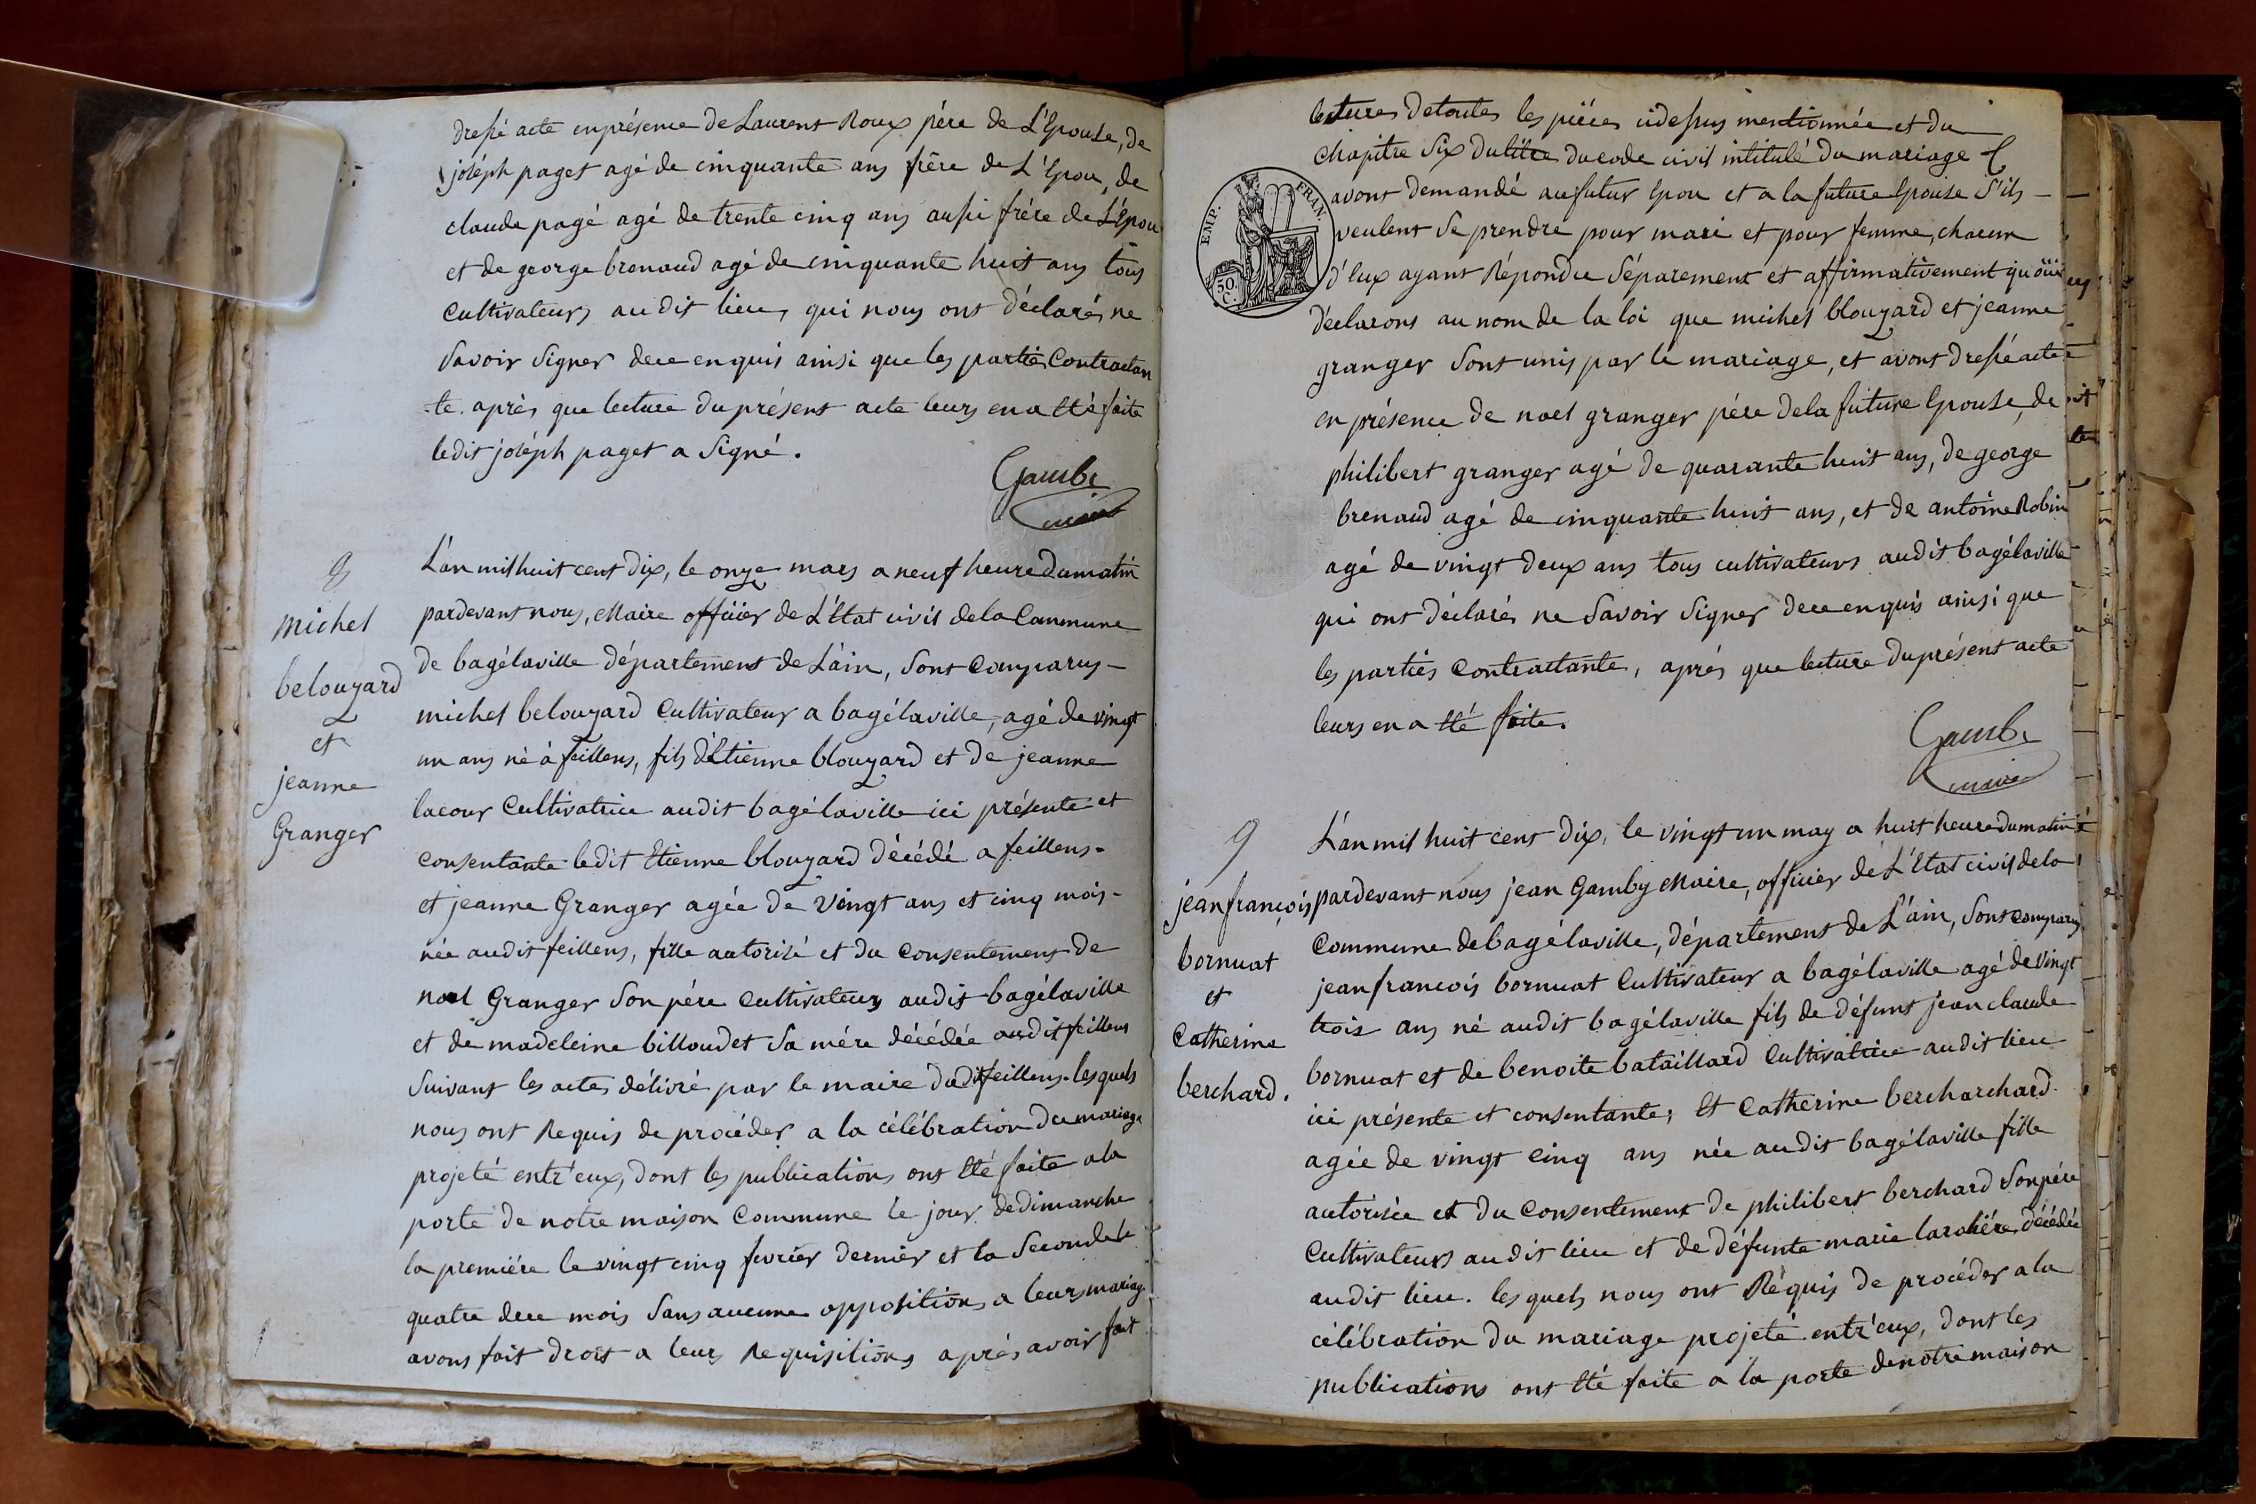 dressé acte en présence de Laurent Roux pére de L'Epouse, de
joséph paget agé de cinquante ans frére de L'Epou, de
claude pagé agé de trente cinq ans aussi frére de L'Epou
et de george brenaud agé de cinquante huit ans tous
cultivateurs au dit lieu, qui nous ont déclarés ne
Savoir Signer dece enquis ainsi que les partiés Contractan
-te. aprés que lecture du présent acte leurs en a été faite
ledit joséph paget a Signé.
Gamby
maire
8
michel
belouzard
et
jeanne
Granger
L'an mil huit cent dix, le onze mars a neuf heure du matin
pardevant nous, Maire officiér de L'Etat civil de la Commune
de bagélaville département de L'ain, Sont Comparus -
michel belouzard Cultivateur a bagélaville, agé de vingt
un ans né à feillens, fils d'Etienne blouzard et de jeanne
lacour Cultivatrice audit bagélaville ici présente et
consentante ledit Etienne blouzard décédé a feillens -
et jeanne Granger agée de Vingt ans et cinq mois -
née audit feillens, fille autorisé et du consentement de
noel Granger Son pére Cultivateur audit bagélaville
et de madeleine billoudet Sa mére décédée audit feillens
Suivant les actes délivré par le maire dudit feillens. lesquels
nous ont Requis de procéder a la célébration du mariage
projeté entr'eux, dont les publications ont Eté faite a la
porte de notre maison Commune le jour de dimanche
la premiére le vingt cinq fevriér derniér et la Seconde le
quatre dece mois Sans aucunne oppositions a leurs mariage
avons fait droit a leurs Requisitions aprés avoir fait
lectures de toutes les piéces cidessus mentionnée et du
chapitre Six du titre du code civil intitulé du mariage
EMP. FRAN.
50 C.
avons demandé au futur Epou et a la future Epouse S'ils -
veulent Se prendre pour mari et pour femme, chacun
d'Eux ayant Répondu Séparement et affirmativement qu'oüi
déclarons au nom de la loi que michel blouzard et jeanne
granger Sont unis par le mariage, et avons dressé acte
en présence de noel granger pére de la future Epouse, de
philibert granger agé de quarante huit ans, de george
brenaud agé de cinquante huit ans, et de antoine Robin
agé de vingt deux ans tous cultivateurs audit bagélaville
qui ont déclarés ne Savoir Signer dece enquis ainsi que
les partiés Contractante, aprés que lecture du présent acte
leurs en a Eté faite.
Gamby
maire
9
jean françois
bornuat
et
Catherine
berchard.
L'an mil huit cent dix, le vingt un may a huit heure du matin
pardevant nous jean Gamby Maire, officier de L'Etat civil de la
Commune de bagélaville, département de L'ain, Sont comparus
jean francois bornuat Cultivateur a bagélaville agé de vingt
trois ans né audit bagélaville fils de défunt jean claude
bornuat et de benoite bataillard Cultivatrice audit lieu
ici présente et consentante; Et Catherine bercharchard
agée de vingt cinq ans née audit bagélaville fille
autorisée et du Consentement de philibert berchard Son pére
Cultivateurs audit lieu et de défunte marie décédée
audit lieu. les quels nous ont Réquis de procéder a la
célébration du mariage projeté entr'eux, dont les
publications ont Eté faite a la porte de notre maison